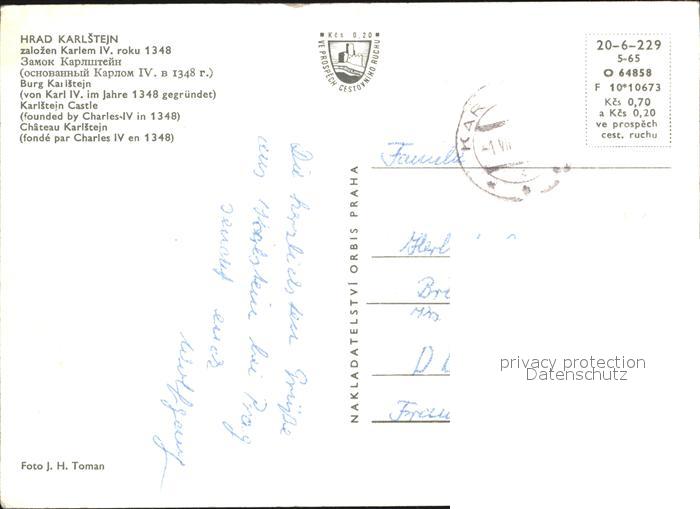 HRAD KARLŠTEJN
založen Karlem IV. roku 1348
Замок Карлштейн
(основанный Карлом IV. в 1348 г.)
Burg Karlštejn
(von Karl IV. im Jahre 1348 gegründet)
Karlštejn Castle
(founded by Charles-IV in 1348)
Château Karlštejn
(fondé par Charles IV en 1348)
Kčs 0,20
VE PROSPĚCH CESTOVNÍHO RUCHU
20-6-229
5-65
O 64858
F 10*10673
Kčs 0,70
a Kčs 0,20
ve prospěch
cest. ruchu
KAR
Die herzlichsten Grüße
aus Karlstein bei Prag
sendet euch
Wolfgang
NAKLADATELSTVÍ ORBIS PRAHA
Familie
privacy protection
Datenschutz
Foto J. H. Toman